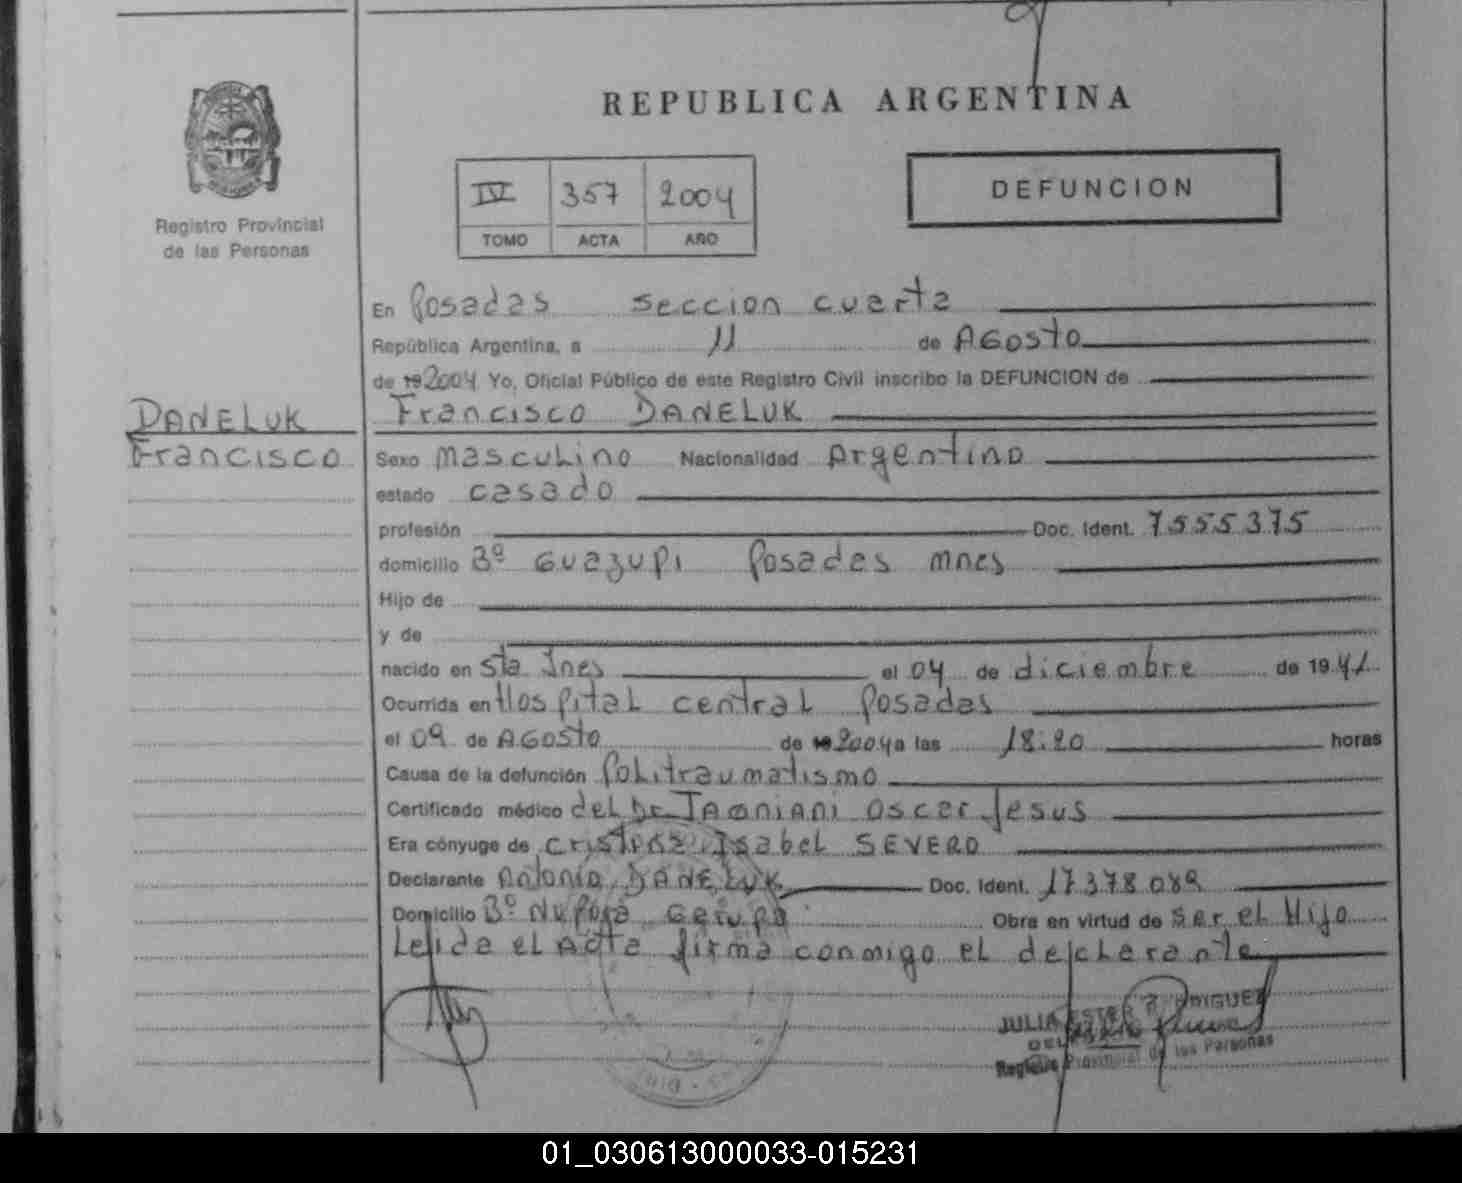 REPUBLICA ARGENTINA
Registro Provincial
de las Personas
IV 357 2004
TOMO ACTA AÑO
DEFUNCION
En Posadas seccion cuarta
República Argentina, a 11 de AGosto
de 19 2004 Yo, Oficial Público de este Registro Civil inscribo la DEFUNCION de
DANELUK
Francisco
Francisco DANELUK
Sexo masculino Nacionalidad Argentino
estado casado
profesión Doc. Ident. 7555375
domicilio Bº Guazupi Posadas mnes
Hijo de
y de
nacido en Sta Ines el 04 de diciembre de 1941
Ocurrida en Hospital central Posadas
el 09 de AGosto de 19 2004 a las 18:20 horas
Causa de la defunción Politraumatismo
Certificado médico del Dr. oscar Jesus
Era cónyuge de Isabel SEVERO
Declarante Antonio DANELUK Doc. Ident. 17378089
Domicilio Bº Obra en virtud de ser el Hijo
Leida el Acta firma conmigo el declarante
JULIA ESTER RODRIGUEZ
Registro Provincial de las Personas
01_030613000033-015231